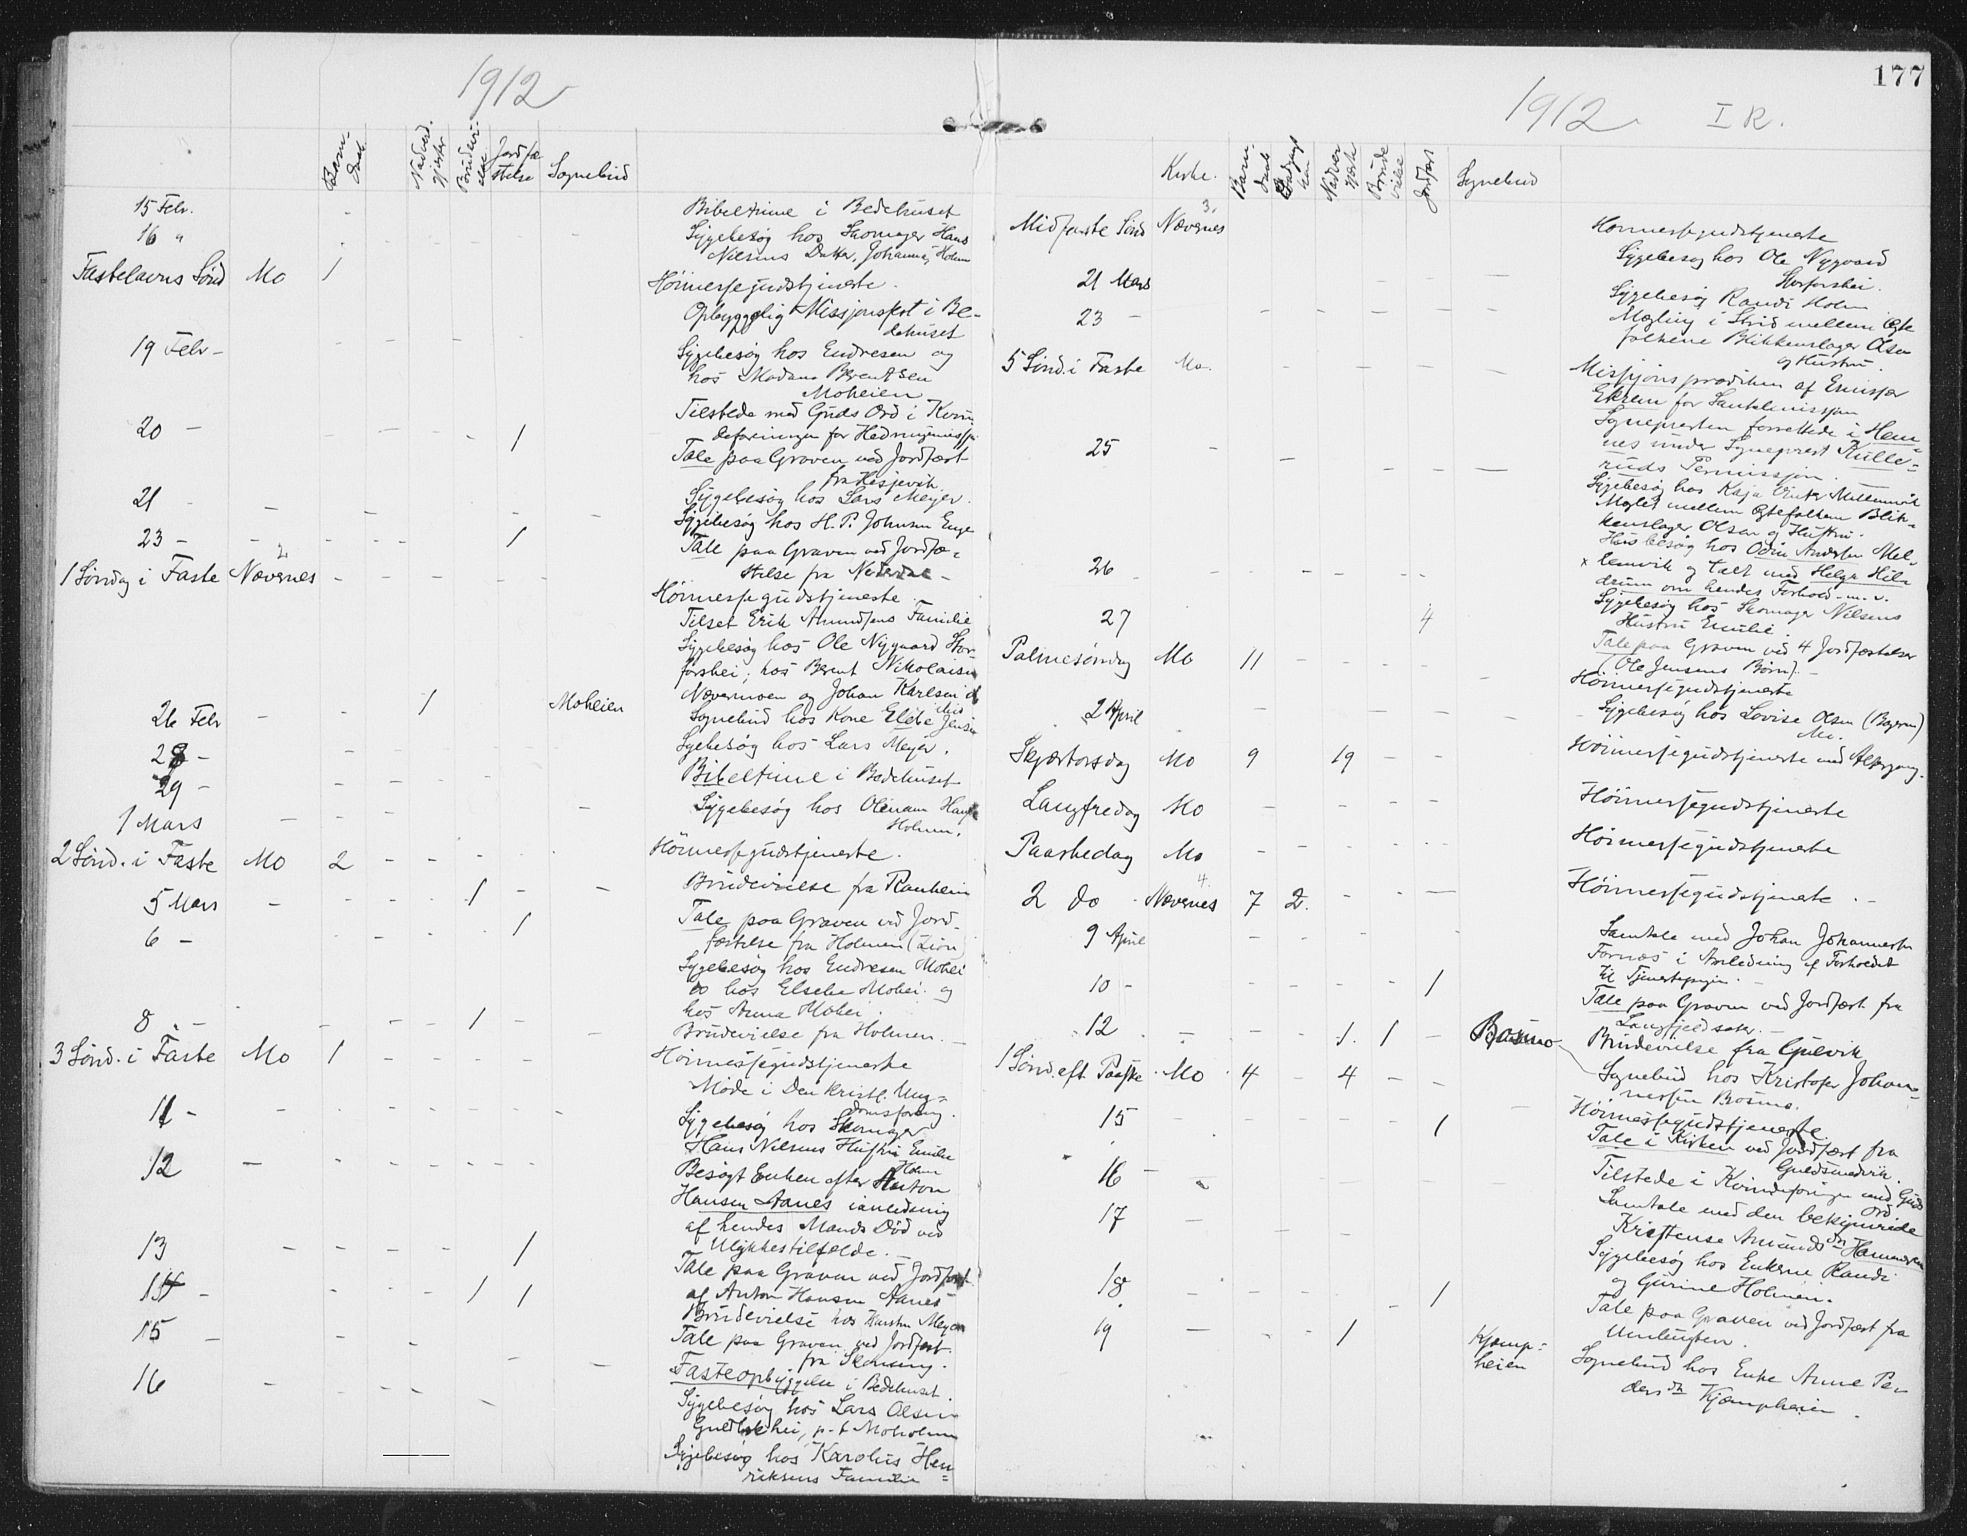 1912
Barn-
daab.
Nadverd.
gjester
Brudevi-
else
Jordfæ
stelse
Sognebud
15 Febr. Bibeltime i Bedehuset
16 " Sygebesøg hos Skomager Hans
Nilsens Datter, Johanna, Holmen
Fastelavns Sønd Mo 1 Høimessegudstjeneste.
Opbyggelig Missionsfest i Be-
dehuset
19 Febr - Sygebesøg hos Endresen og
hos Madam Berentsen
Moheien
20 - 1 Tilstede med Guds Ord i Kvin
deforeningen for Hedningemissj.
Tale paa Graven ved Jordfæst
fra Hesjevik.
21 - Sygebesøg hos Lars Meyer.
Sygebesøg hos H. P. Johnsen Enge
23 - 1 Tale paa Graven ved Jordfæ-
stelse fra Nederdal -
1 Søndag i Faste Nævernes 2. Høimessegudstjeneste.
Tilset Erik Amundsens Familie
Sygebesøg hos Ole Nygaard Stor-
forshei; hos Bernt Nikolaisen
Nævermoen og Johan Karlsen
26 Febr 1 Moheien Sognebud hos Kone Elebe Jensen
28 - Sygebesøg hos Lars Meyer.
29 - Bibeltime i Bedehuset
1 Mars Sygebesøg hos
Holmen.
2 Sønd. i Faste Mo 2 Høimessegudstjeneste.
5 Mars 1 Brudevielse fra Ranheim
6 - 1 Tale paa Graven ved Jord-
fæstelse fra Holmen (Zion)
Sygebesøg hos Endresen Mohei
do hos Elsebe Mohei og
hos Anna Mohei.
8 - 1 Brudevielse fra Holmen.
3 Sønd. i Faste Mo 1 Høimessegudstjeneste
Møde i Den kristl. Ung-
domsforening.
11 - Sygebesøg hos Skomager
Hans Nilsens Hustru Emilie
Holm
12 - Besøgt Enken efter Anton
Hansen Aanes i anledning
af hendes Mands Død ved
Ulykkestilfælde.
13 1 Tale paa Graven ved Jordfæst
af Anton Hansen Aanes
14 - 1 1 Brudevielse hos Karsten Meyer
Tale paa Graven ved Jordfæst.
fra Skonseng.
15 - Fasteopbyggelse i Bedehuset.
16 Sygebesøg hos Lars Olsen
hei, p.t. Moholmen
Sygebesøg hos Karolus Hen
riksens Familie
177
1912 I R.
Kirke.
Barn.
daab
Nadver
gjeste
Brude
vielse
Jordfæst
Sognebud
Midfaste Sønd Nævernes 3. Høimessegudstjeneste
21 Mars Sygebesøg hos Ole Nygaard
Storforshei.
23 - Sygebesøg Randi Holm
Mægling i Strid mellem Ægte
folkene Blikkenslager Olsen
og Hustru.
5 Sønd. i Faste Mo. Missjonsprædiken af Emissær
Ekrem for Santalmissjon
Sognepresten forrettede i Hem-
nes under Sogneprest Kulle-
ruds Permissjon.
25 Sygebesøg hos Kaja Mellemvik
Mæglet mellem Ægtefolkene Blik-
kenslager Olsen og Hustru.
Husbesøg hos Odin Andersen Mel-
26 x lemvik og talt med Helga Hil-
drum om hendes Forhold m. v.
Sygebesøg hos Skomager Nilsens
Hustru Emilie.
27 4 Tale paa Graven ved 4 Jordfæstelser
(Ole Jensens Børn). -
Palmesøndag Mo 11 Høimessegudstjeneste
2 April Sygebesøg hos Lovise Olsen
Mo.
Skjærtorsdag Mo 9 19 Høimessegudstjeneste med Altergang.
Langfredag Mo Høimessegudstjeneste
Paaskedag Mo Høimessegudstjeneste
2 do Nævernes 4. 7 2. Høimessegudstjeneste. -
9 April Samtale med Johan Johannesen
Fornæs i Anledning af Forholdet
til Tjenestepigen. -
10 - 1 Tale paa Graven ved Jordfæst fra
Langfjeldsaker. -
12 1. 1 Bosmo Brudevielse fra Gulvik
Sognebud hos Kristofer Johan-
nessen Bosmo.
1 Sønd. eft. Paaske Mo 4 4 Høimessegudstjeneste
15 1 Tale i Kirken ved Jordfæst fra
Guldsmedvik.
16 - Tilstede i Kvindeforeningen med Guds
Ord
17 Samtale med den bekymrede
Kristense Amundsdtr Hammeren
Sygebesøg hos Enkerne Randi
og Gurine Holmen.
18 1 Tale paa Graven ved Jordfæst fra
Umbugten.
19 1 Kjæmp-
heien Sognebud hos Enke Anne Pe-
dersdtr Kjæmpheien.